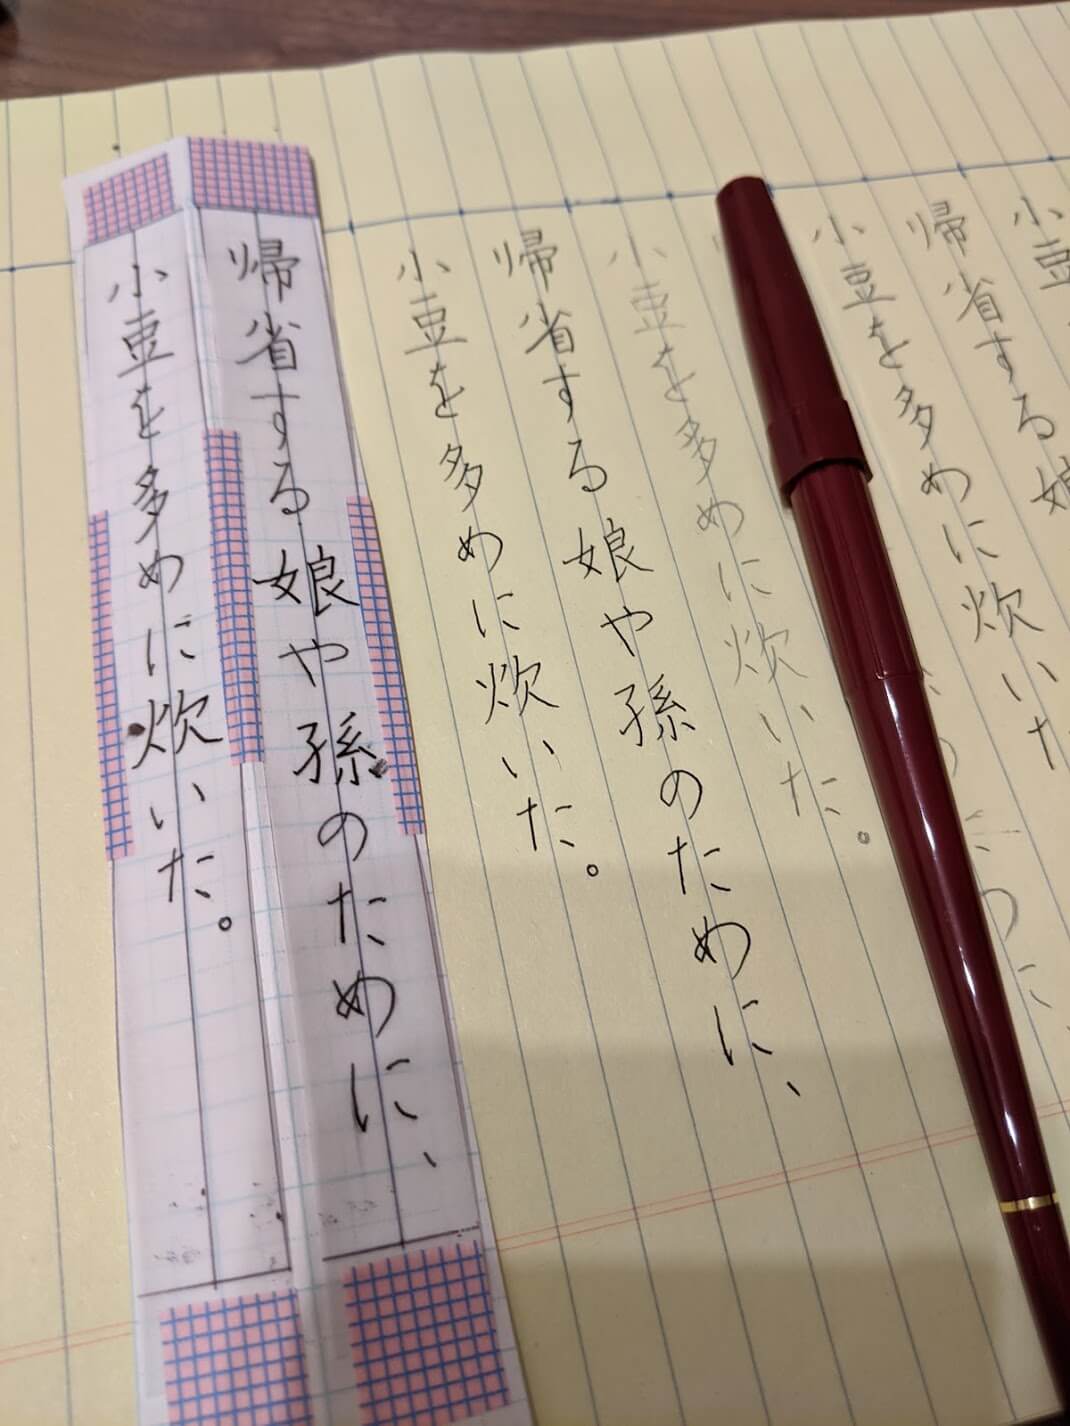 小豆
帰省する娘
小豆を多めに炊いた
小豆を多めに炊いた。
帰省する娘や孫のために、
小豆を多めに炊いた。
帰省する娘や孫のために、
小豆を多めに炊いた。